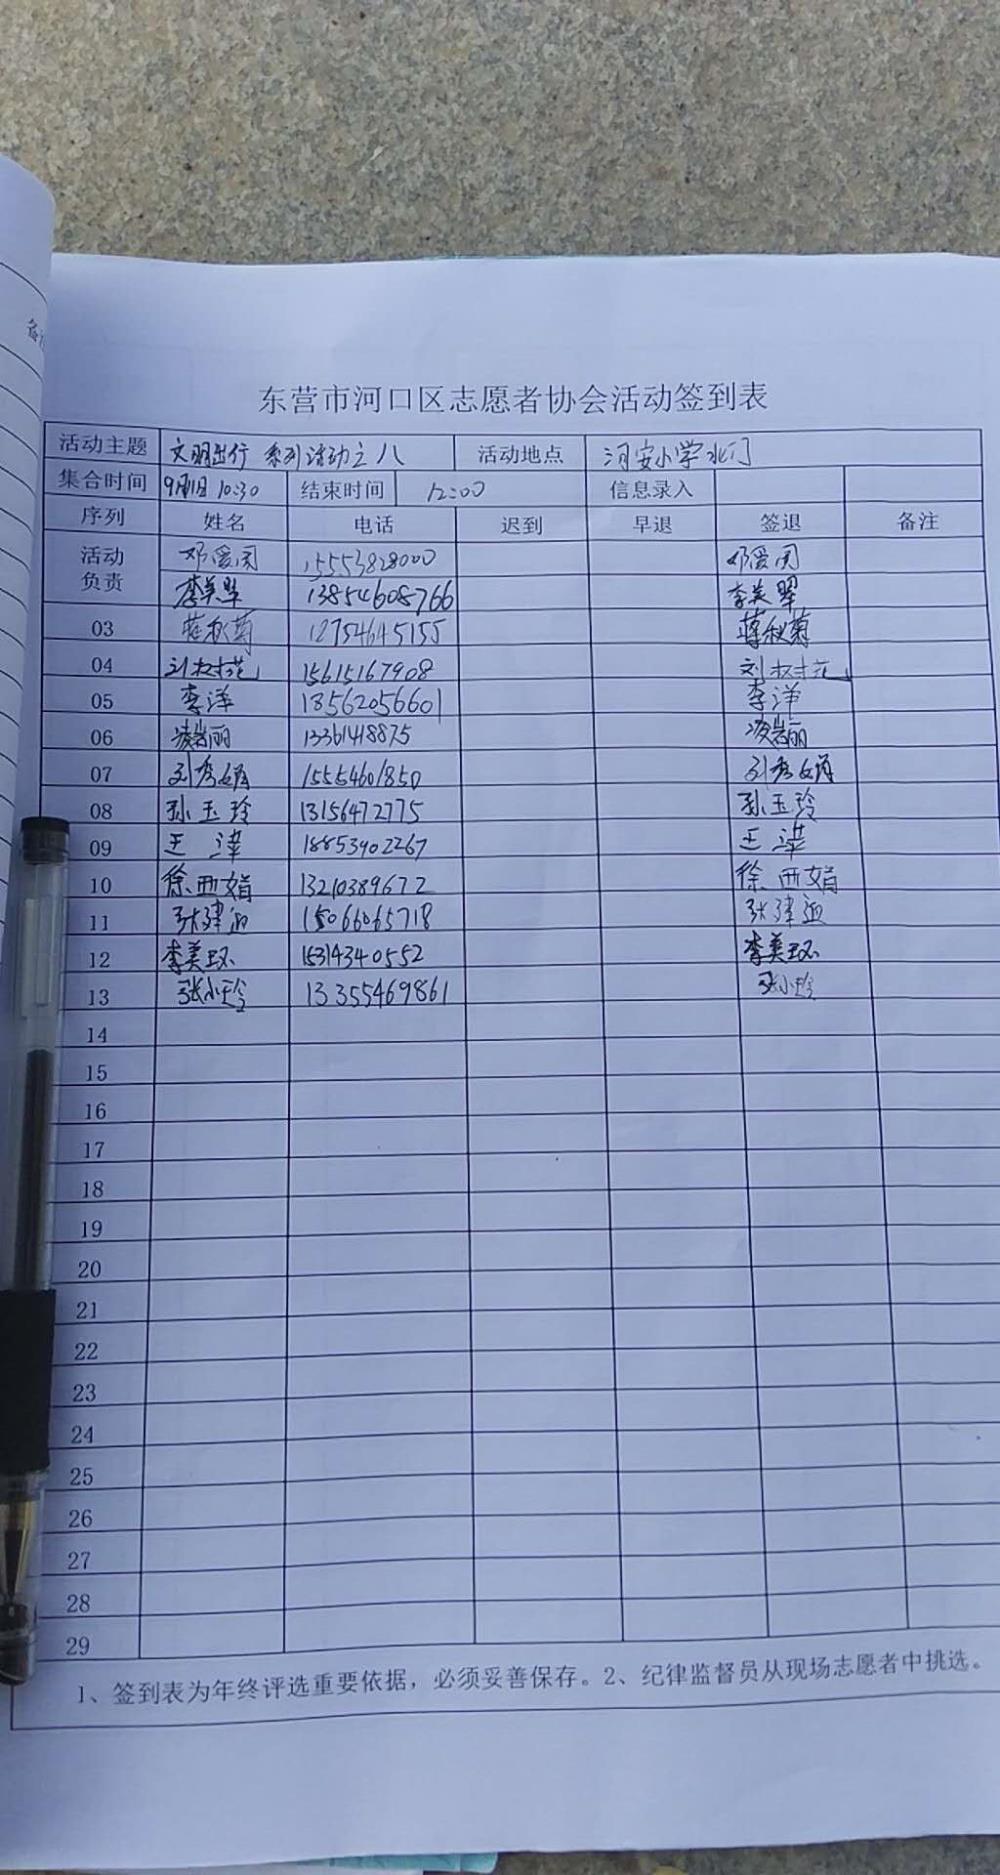 东营市河口区志愿者协会活动签到表
活动主题 文明出行 系列活动之八 活动地点 河安小学北门
集合时间 10:30 结束时间 12:00 信息录入
序列 姓名 电话 迟到 早退 签退 备注
活动负责 邓爱国 15553828000 邓爱国
李美翠 13854608766 李美翠
03 蒋秋菊 蒋秋菊
04 15615167908
05 李洋 13562056601 李洋
06 凌岩丽 13361418875 凌岩丽
07 刘秀娟 15554601850 刘秀娟
08 孙玉玲 13156472775 孙玉玲
09 王 18853902267 王
10 徐西娟 13210389672 徐西娟
11 15066065718
12 李美环 15314340552 李美环
13 张小玲 13355469861 张小玲
14
15
16
17
18
19
20
21
22
23
24
25
26
27
28
29
1、签到表为年终评选重要依据，必须妥善保存。2、纪律监督员从现场志愿者中挑选。